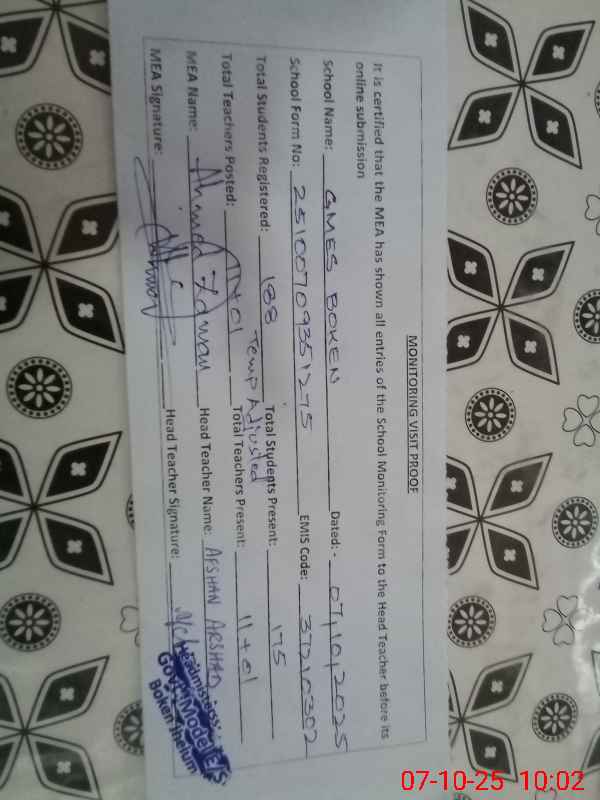 MONITORING VISIT PROOF
It is certified that the MEA has shown all entries of the School Monitoring Form to the Head Teacher before its
online submission
School Name: GMES BOKEN Dated:- 07,10,2025
School Form No: 25100709351275 EMIS Code: 37210302
Total Students Registered: 188 Total Students Present: 175
Temp Adjusted
Total Teachers Posted: 11+01 Total Teachers Present: 11+01
MEA Name: Ahmed Zawan Head Teacher Name: AFSHAN ARSHAD
MEA Signature: Head Teacher Signature:
Headmistress
Govt. Model E/S
Boken Jhelum
07-10-25 10:02